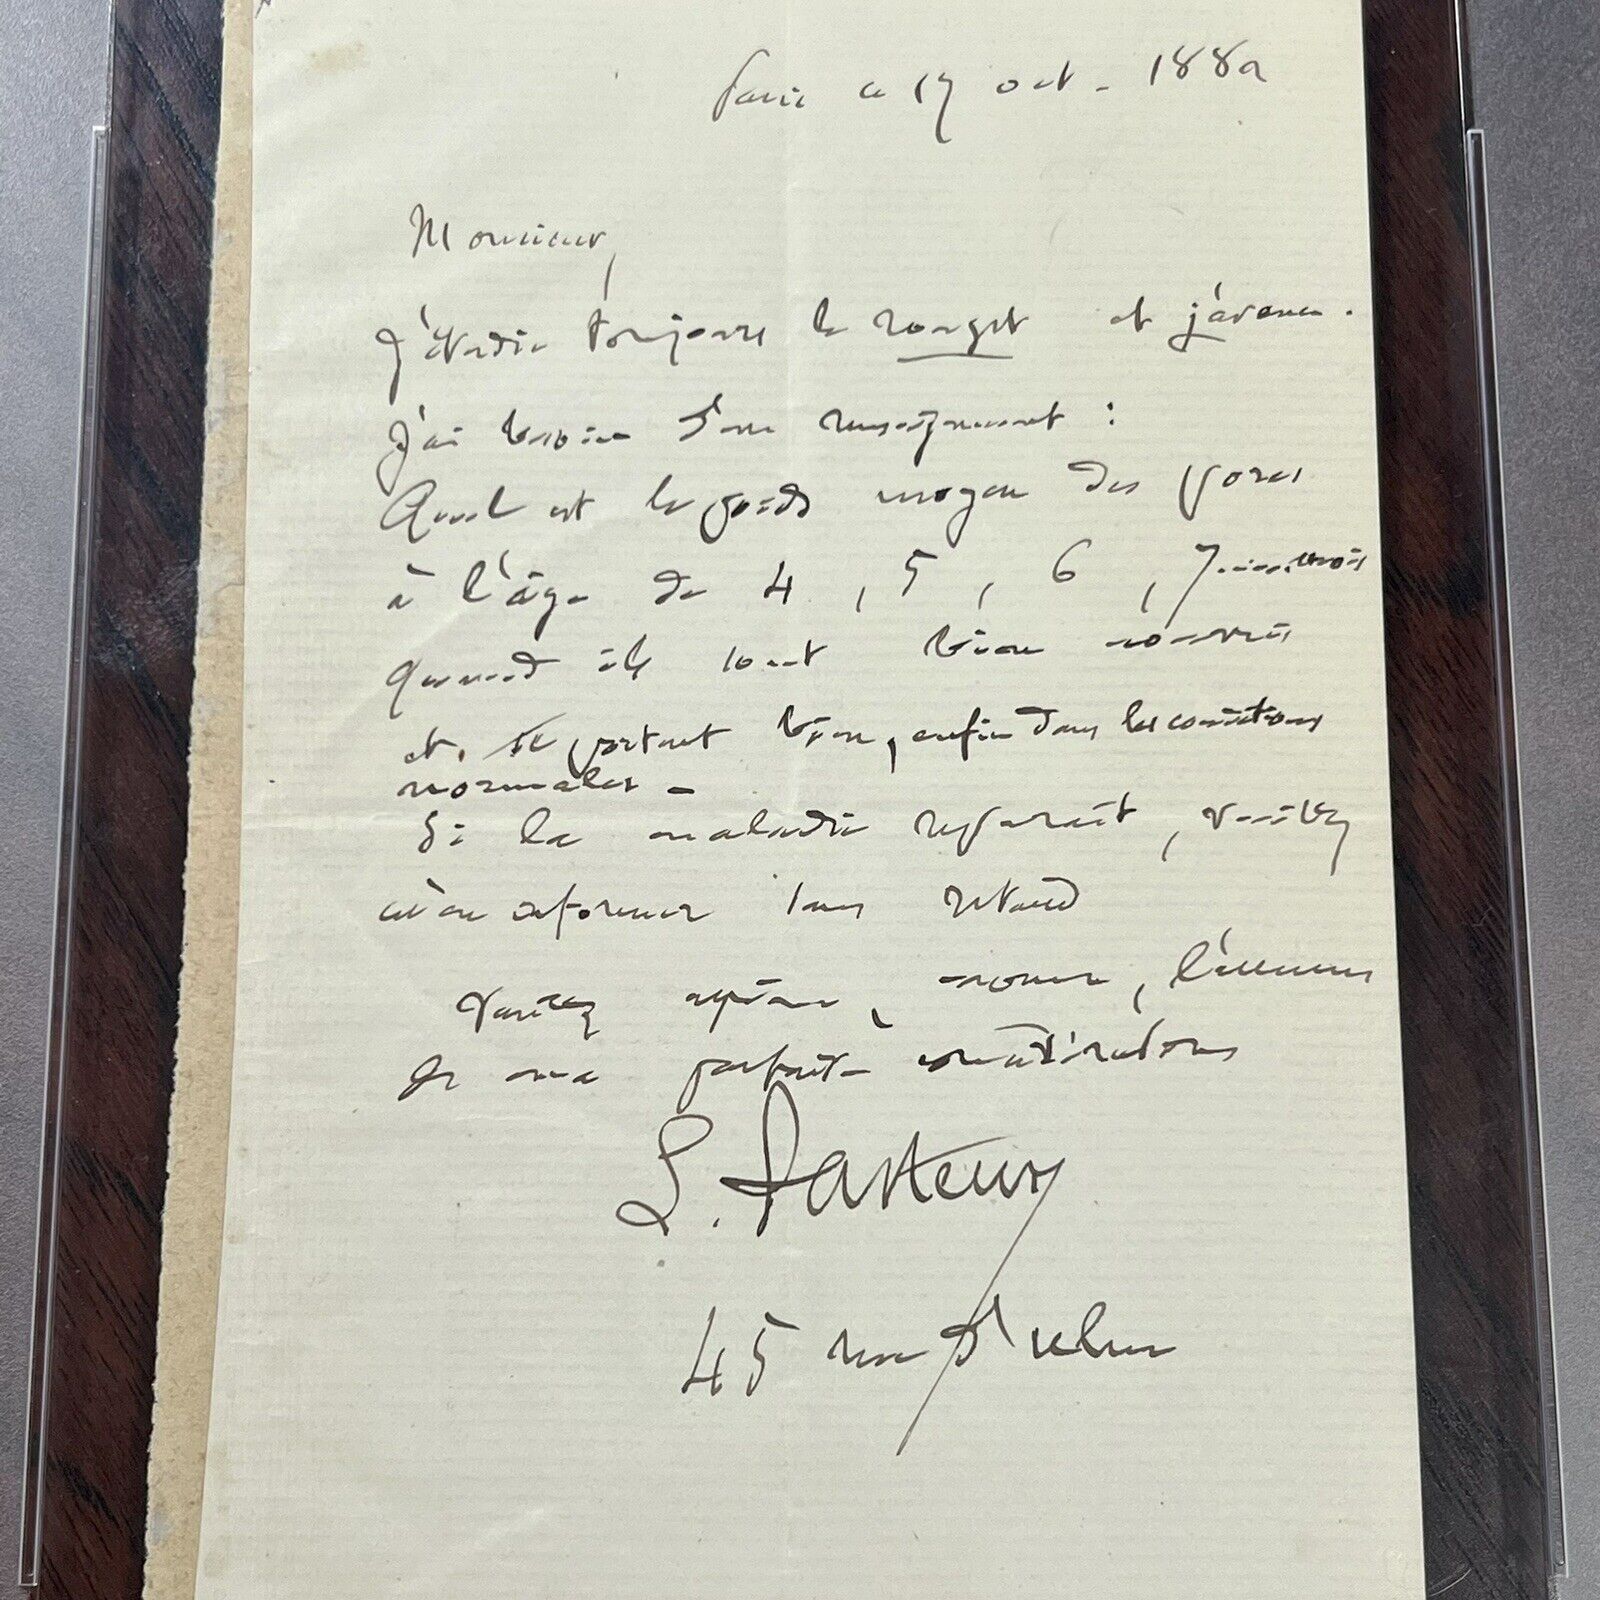 Paris ce 17 oct. 1882
Monsieur,
J'étudie toujours le rouget et j'avance.
J'ai besoin d'un renseignement :
Quel est le poids moyen des porcs
à l'âge de 4, 5, 6, 7 ..... mois
quand ils sont bien nourris
et se portent bien, enfin dans les conditions
normales -
Si la maladie reparait, veuillez
m'en informer sans retard
Veuillez agréer, Monsieur, l'assurance
de ma parfaite considération
L. Pasteur
45 rue d'Ulm